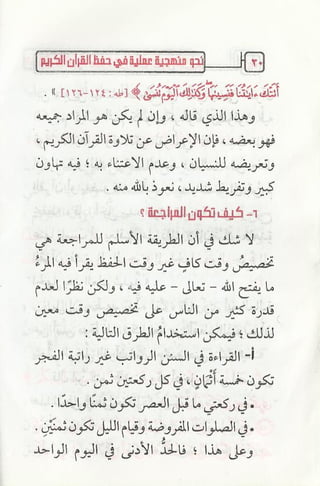 ٢٠ نحو منهجية عملية في حفظ القرآن الكريم
أَتَتْكَ ءَايَٰتُنَا فَنَسِيتَهَا ۖ وَكَذَٰلِكَ ٱلْيَوْمَ تُنسَىٰ ﴾ [طه: ١٢٤-١٢٦] » .
وهذا الذي قاله ، وإن لم يكن هو المراد جميعه
فهو بعضه ، فإن الإعراض عن تلاوة القرآن الكريم ،
وتعريضه للنسيان ، وعدم الاعتناء به ؛ فيه تهاون
كبير وتفريط شديد ، نعوذ بالله منه .
٦- كيف تكون المراجعة ؟
لا شك في أن الطريقة الأسلم للمراجعة هي
تخصيصُ وقت كافٍ غير وقت الحفظ يقرأ فيه المرءُ
ما يفتح الله - تعالى - عليه فيه ، ولكن نظرًا لعدم
قدرة كثير من الناس على تخصيص وقت معين
لذلك ؛ فيمكن استخدامُ الطرق التالية :
أ- القراءة في السنن الرواتب غير راتبة الفجر
تكون خمسة أَثْمَانٍ ، في كل ركعتين ثمن .
• في ركعتي ما قبل العصر تكون ثمنًا واحدًا .
• في الصلوات المفروضة وقيام الليل تكون ثمنَيْنِ .
وعلى هذا ؛ فالحدُّ الأدنى في اليوم الواحد